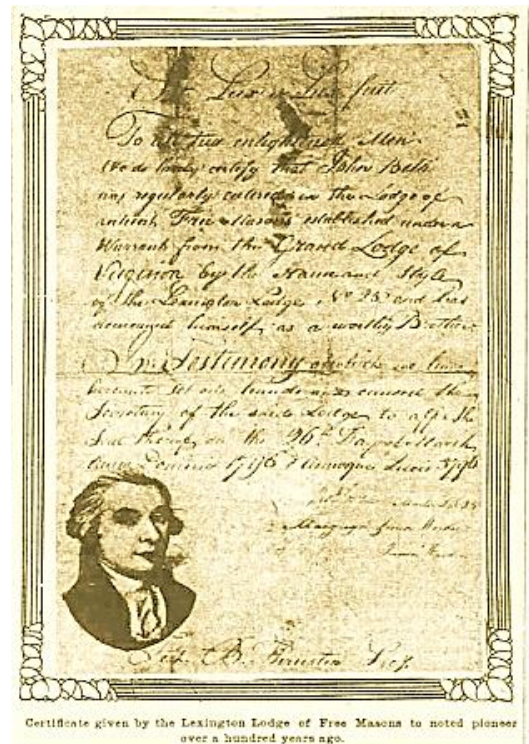 Lux et Lux fuit
To all true enlightened Men
We do hereby certify that John
was regularly entered in the Lodge of
antient Free Masons established under a
Warrant from the Grand Lodge of
Virginia by the Name and Style
of the Lexington Lodge No 25 and has
demeaned himself as a worthy Brother
In Testimony whereof we have
hereunto set our hands and caused the
Secretary of the said Lodge to affix the
Seal thereof on the 26th Day of March
Anno Domini 1796 Annoque Lucis 5796
Senior Warden
Junior
B. Thruston Secy
Certificate given by the Lexington Lodge of Free Masons to noted pioneer
over a hundred years ago.